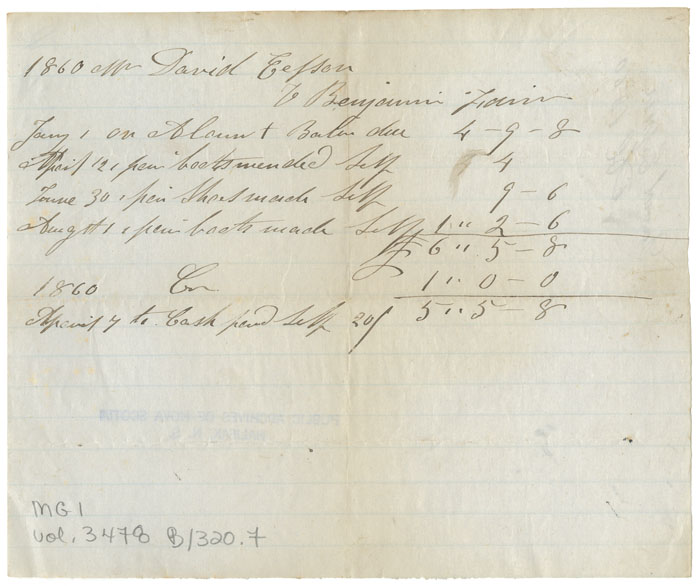 1860 Mr David Eefson
to Benjamin Fair
Jany 1 on Acount Balm due 4 - 9 - 8
Apeil 12 1 peir boots mended Self 4
June 30 1 peir Shoes made Self 9 - 6
Augst 1 1 peir boots made Self 1 " 2 - 6
£ 6 " 5 - 8
1860 Cr 1 " 0 - 0
Apeirl 7 to Cash peid Self 20/ 5 " 5 - 8
PUBLIC ARCHIVES OF NOVA SCOTIA
HALIFAX, N. S.
MG 1
vol. 3478 B/320.7